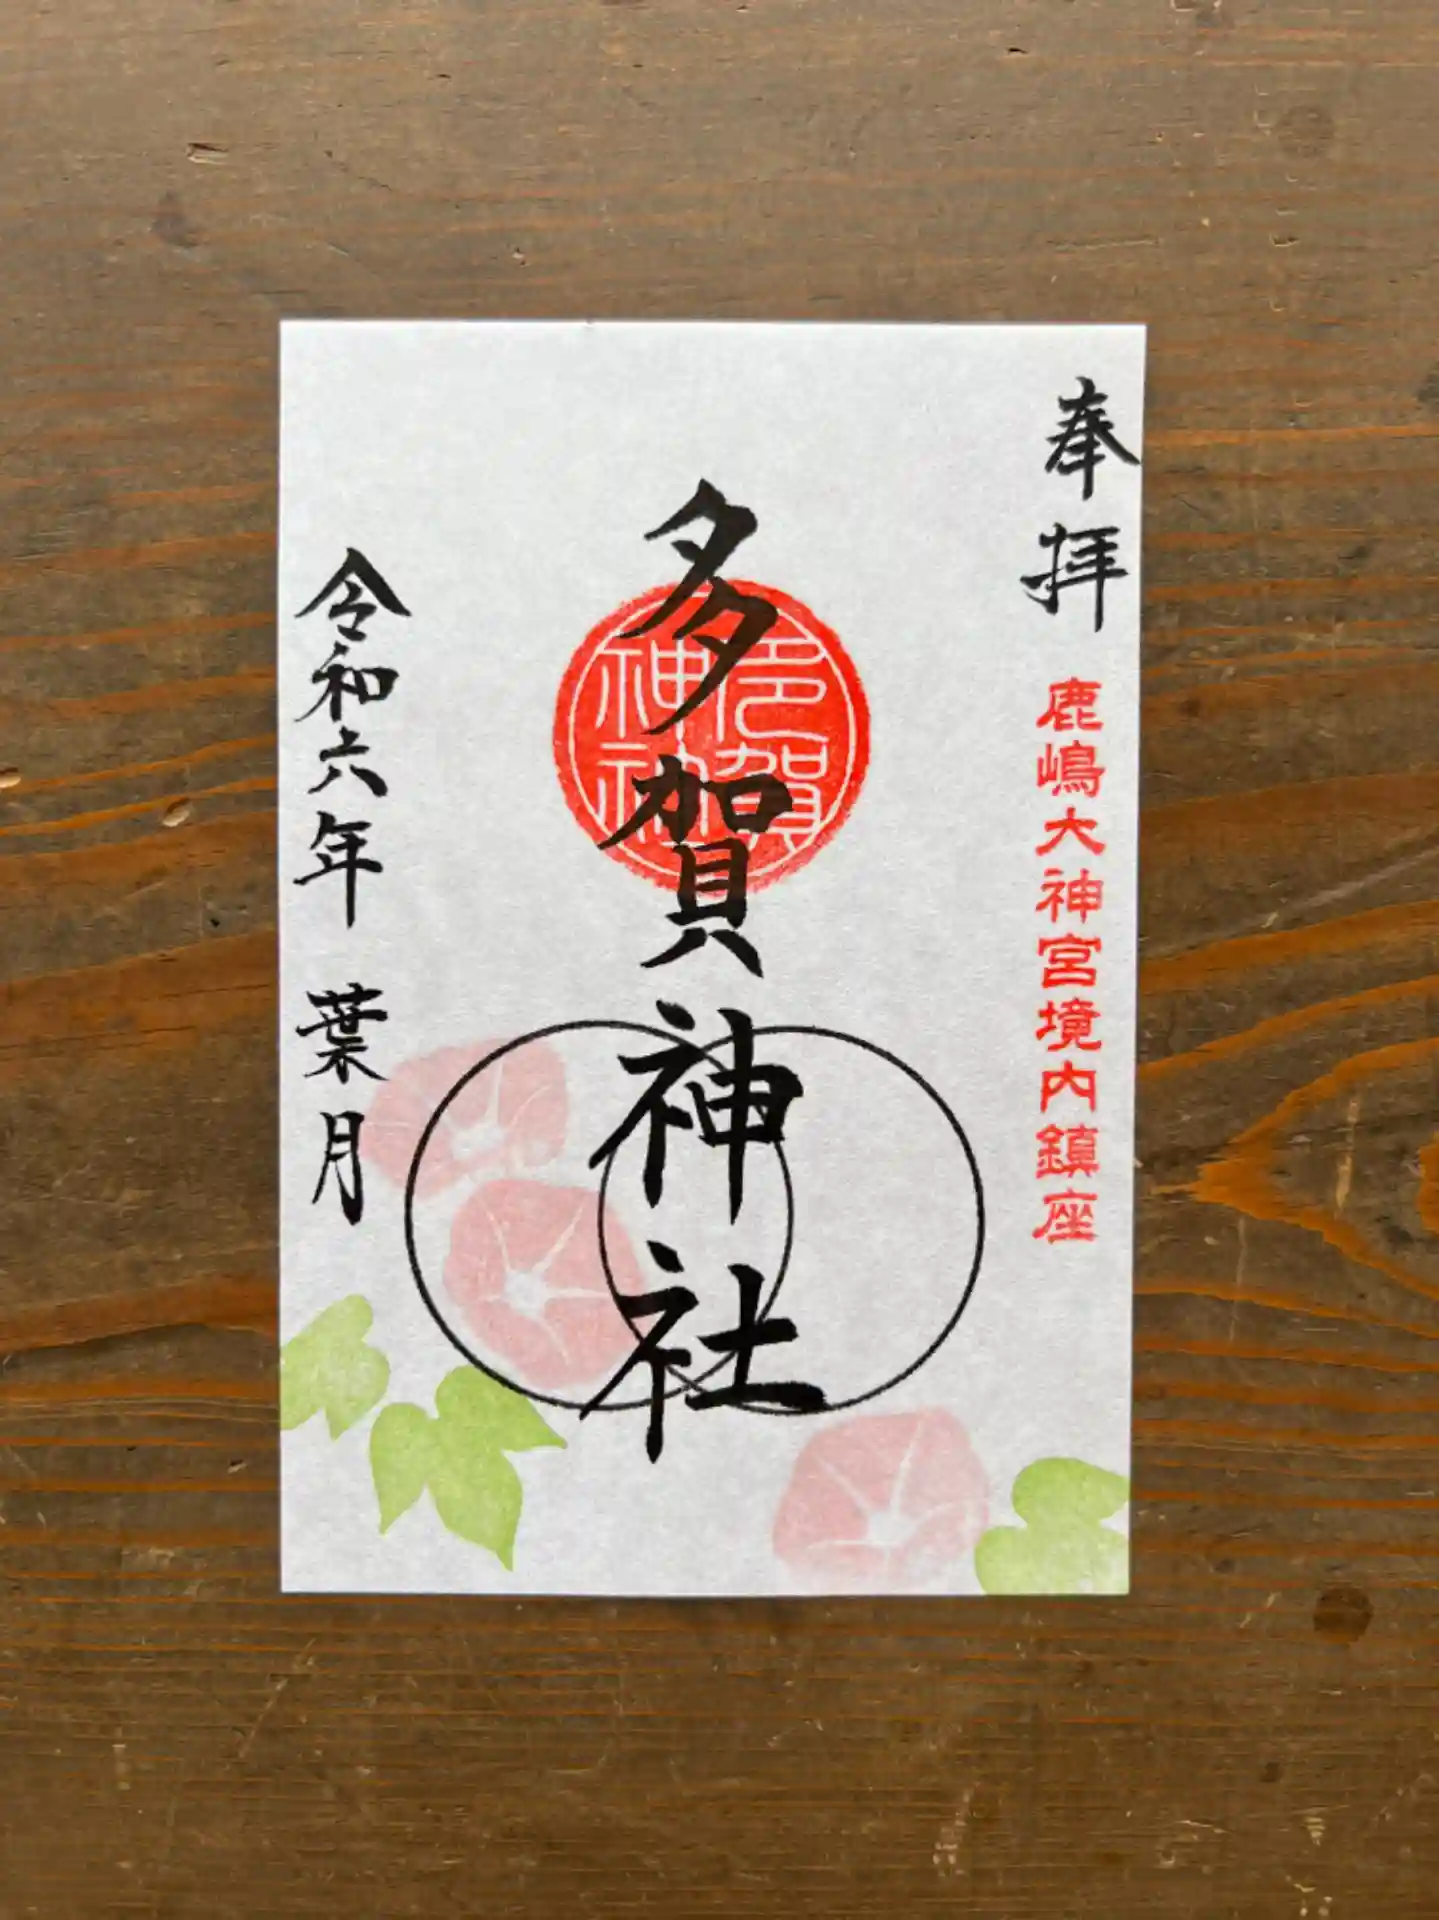 奉拝
鹿嶋大神宮境内鎮座
多賀神社
多賀
神社
令和六年 葉月